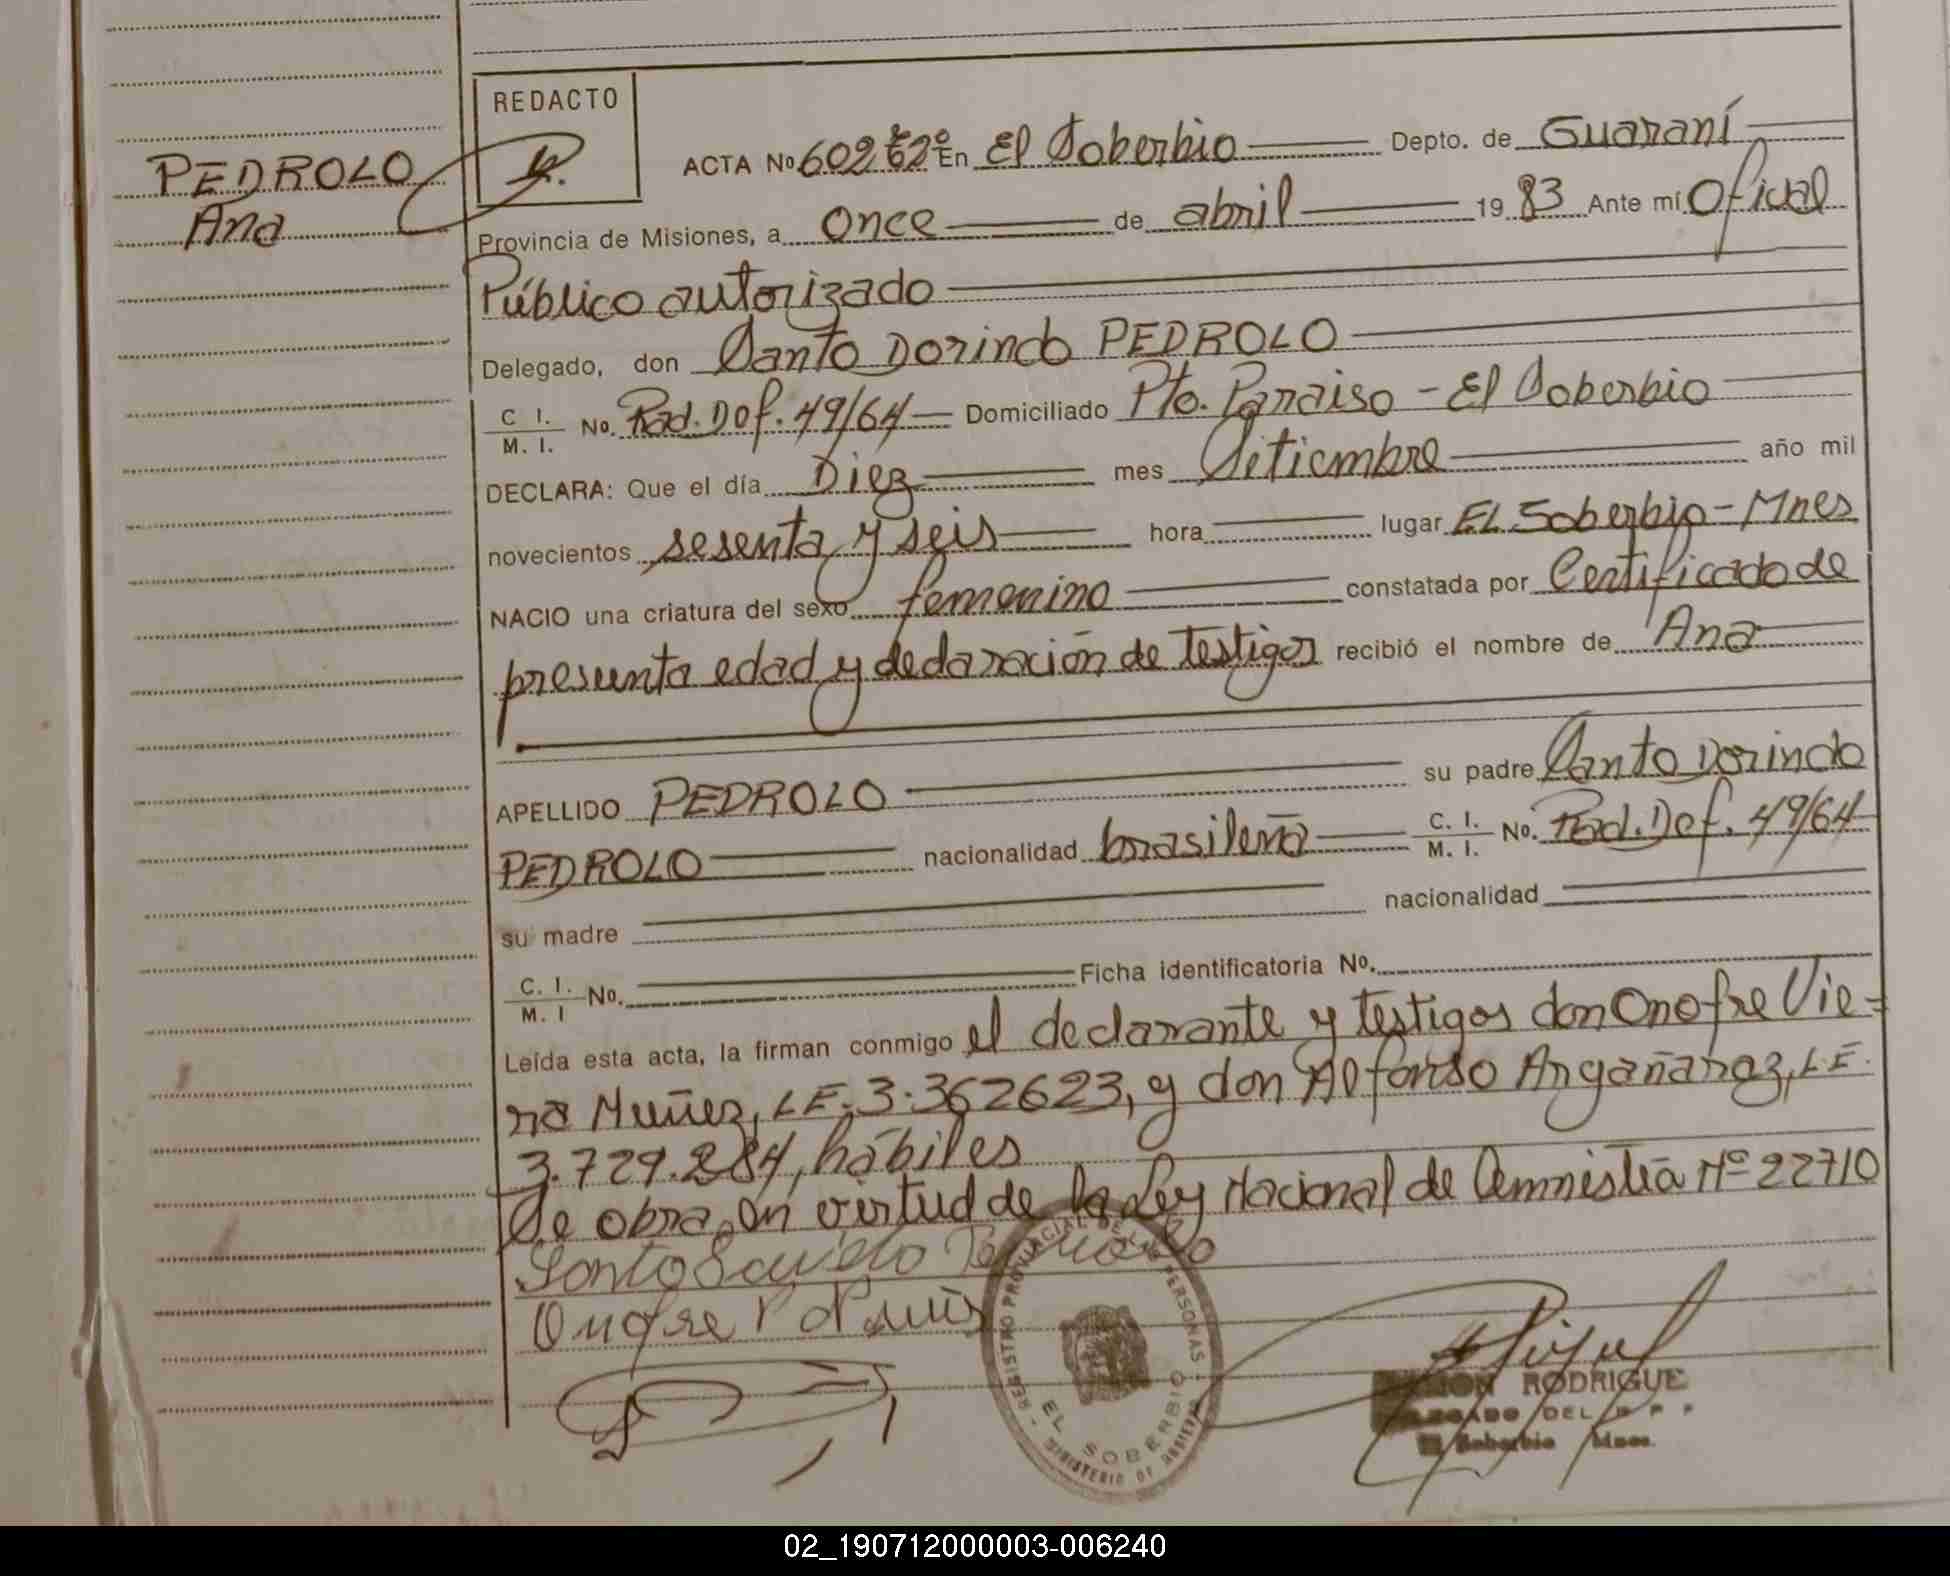 PEDROLO
Ana
REDACTO
ACTA No 602 En El Soberbio Depto. de Guaraní
Provincia de Misiones, a once de abril 1983 Ante mí Oficial
Público autorizado
Delegado, don Santo Dorindo PEDROLO
C I. M. I. No. Rad. Def. 49/64 Domiciliado Pto. Paraiso - El Soberbio
DECLARA: Que el día Diez mes Setiembre año mil
novecientos sesenta y seis hora lugar EL Soberbio - Mnes
NACIO una criatura del sexo femenino constatada por Certificado de
presunta edad y declaración de testigos recibió el nombre de Ana
APELLIDO PEDROLO su padre Santo Dorindo
PEDROLO nacionalidad brasileña C. I. M. I. No. Rad. Def. 49/64
su madre nacionalidad
C. I. M. I No. Ficha identificatoria No.
Leída esta acta, la firman conmigo el declarante y testigos don Onofre Vie-
ra Muñez, L.E. 3.362623, y don Alfonso Argañaraz, L.E.
3.729.284, hábiles
De obra en virtud de la Ley Nacional de Amnistía Nº 22710
REGISTRO PROVINCIAL DE LAS PERSONAS
EL SOBERBIO
MINISTERIO DE
RODRIGUE
DEL R P P
Soberbio Mnes.
02_190712000003-006240